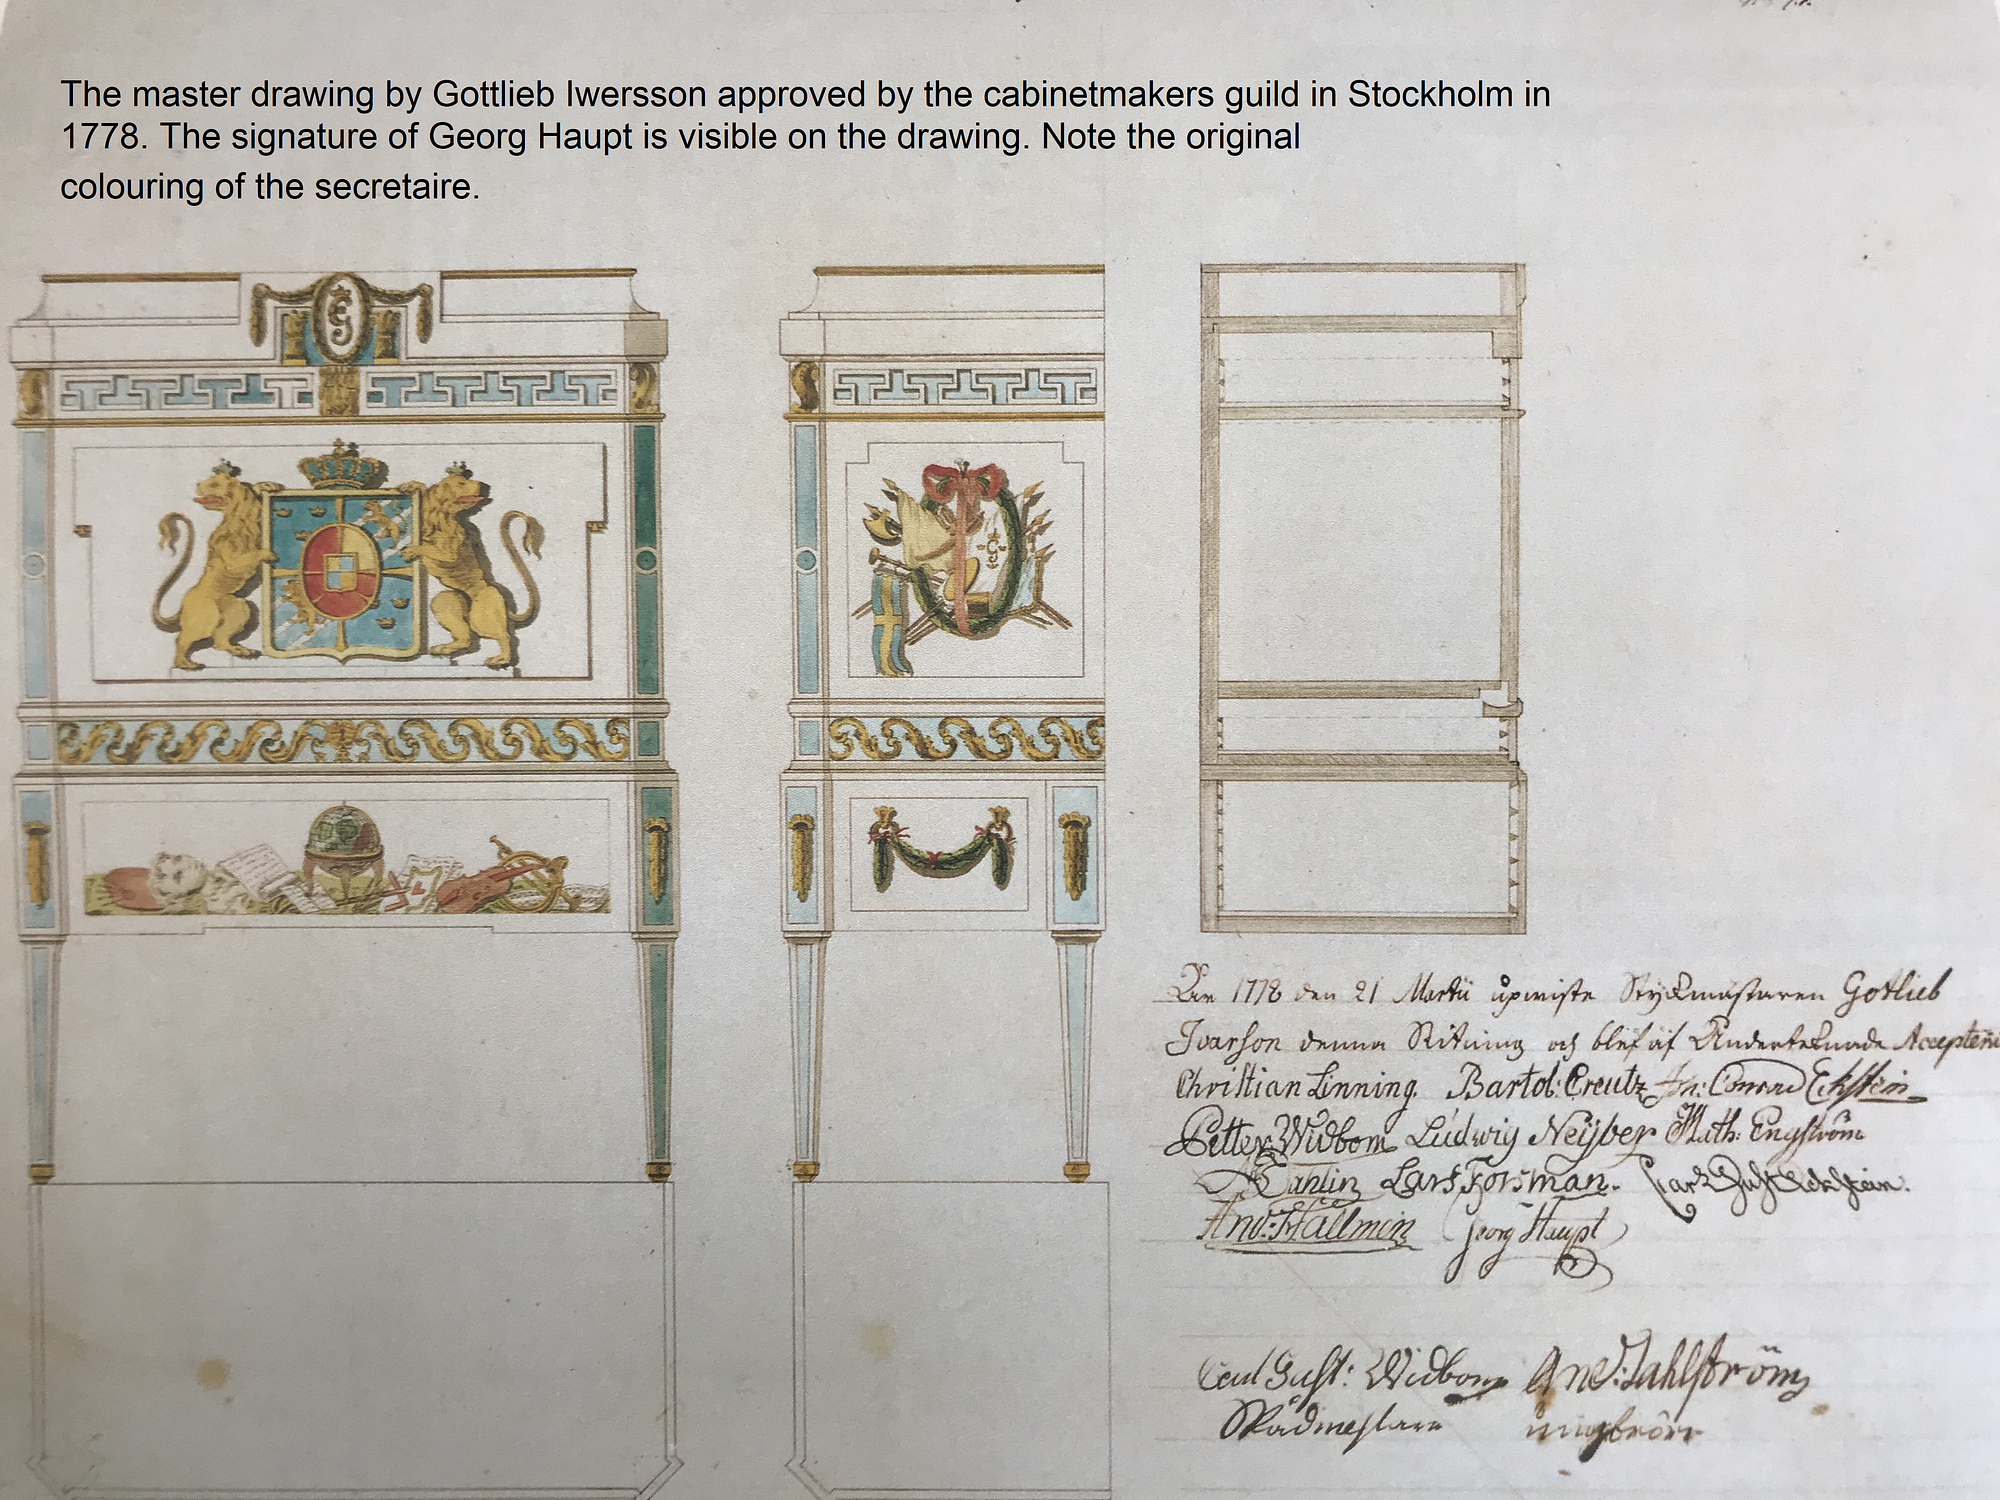 The master drawing by Gottlieb Iwersson approved by the cabinetmakers guild in Stockholm in
1778. The signature of Georg Haupt is visible on the drawing. Note the original
colouring of the secretaire.
1778 den 21 Martii upwiste Styckmästaren Gotlieb
Ivarson denna Ritning och blef af Underteknade
Christian Linning. Bartol: Creutz Conrad Eckstein
Petter Widbom Ludwig Neijber Math: Engström
Lars Forsman. Carl Gust Eckstein.
And: Hallmin Georg Haupt
Carl Gust: Widbom And: Dahlström